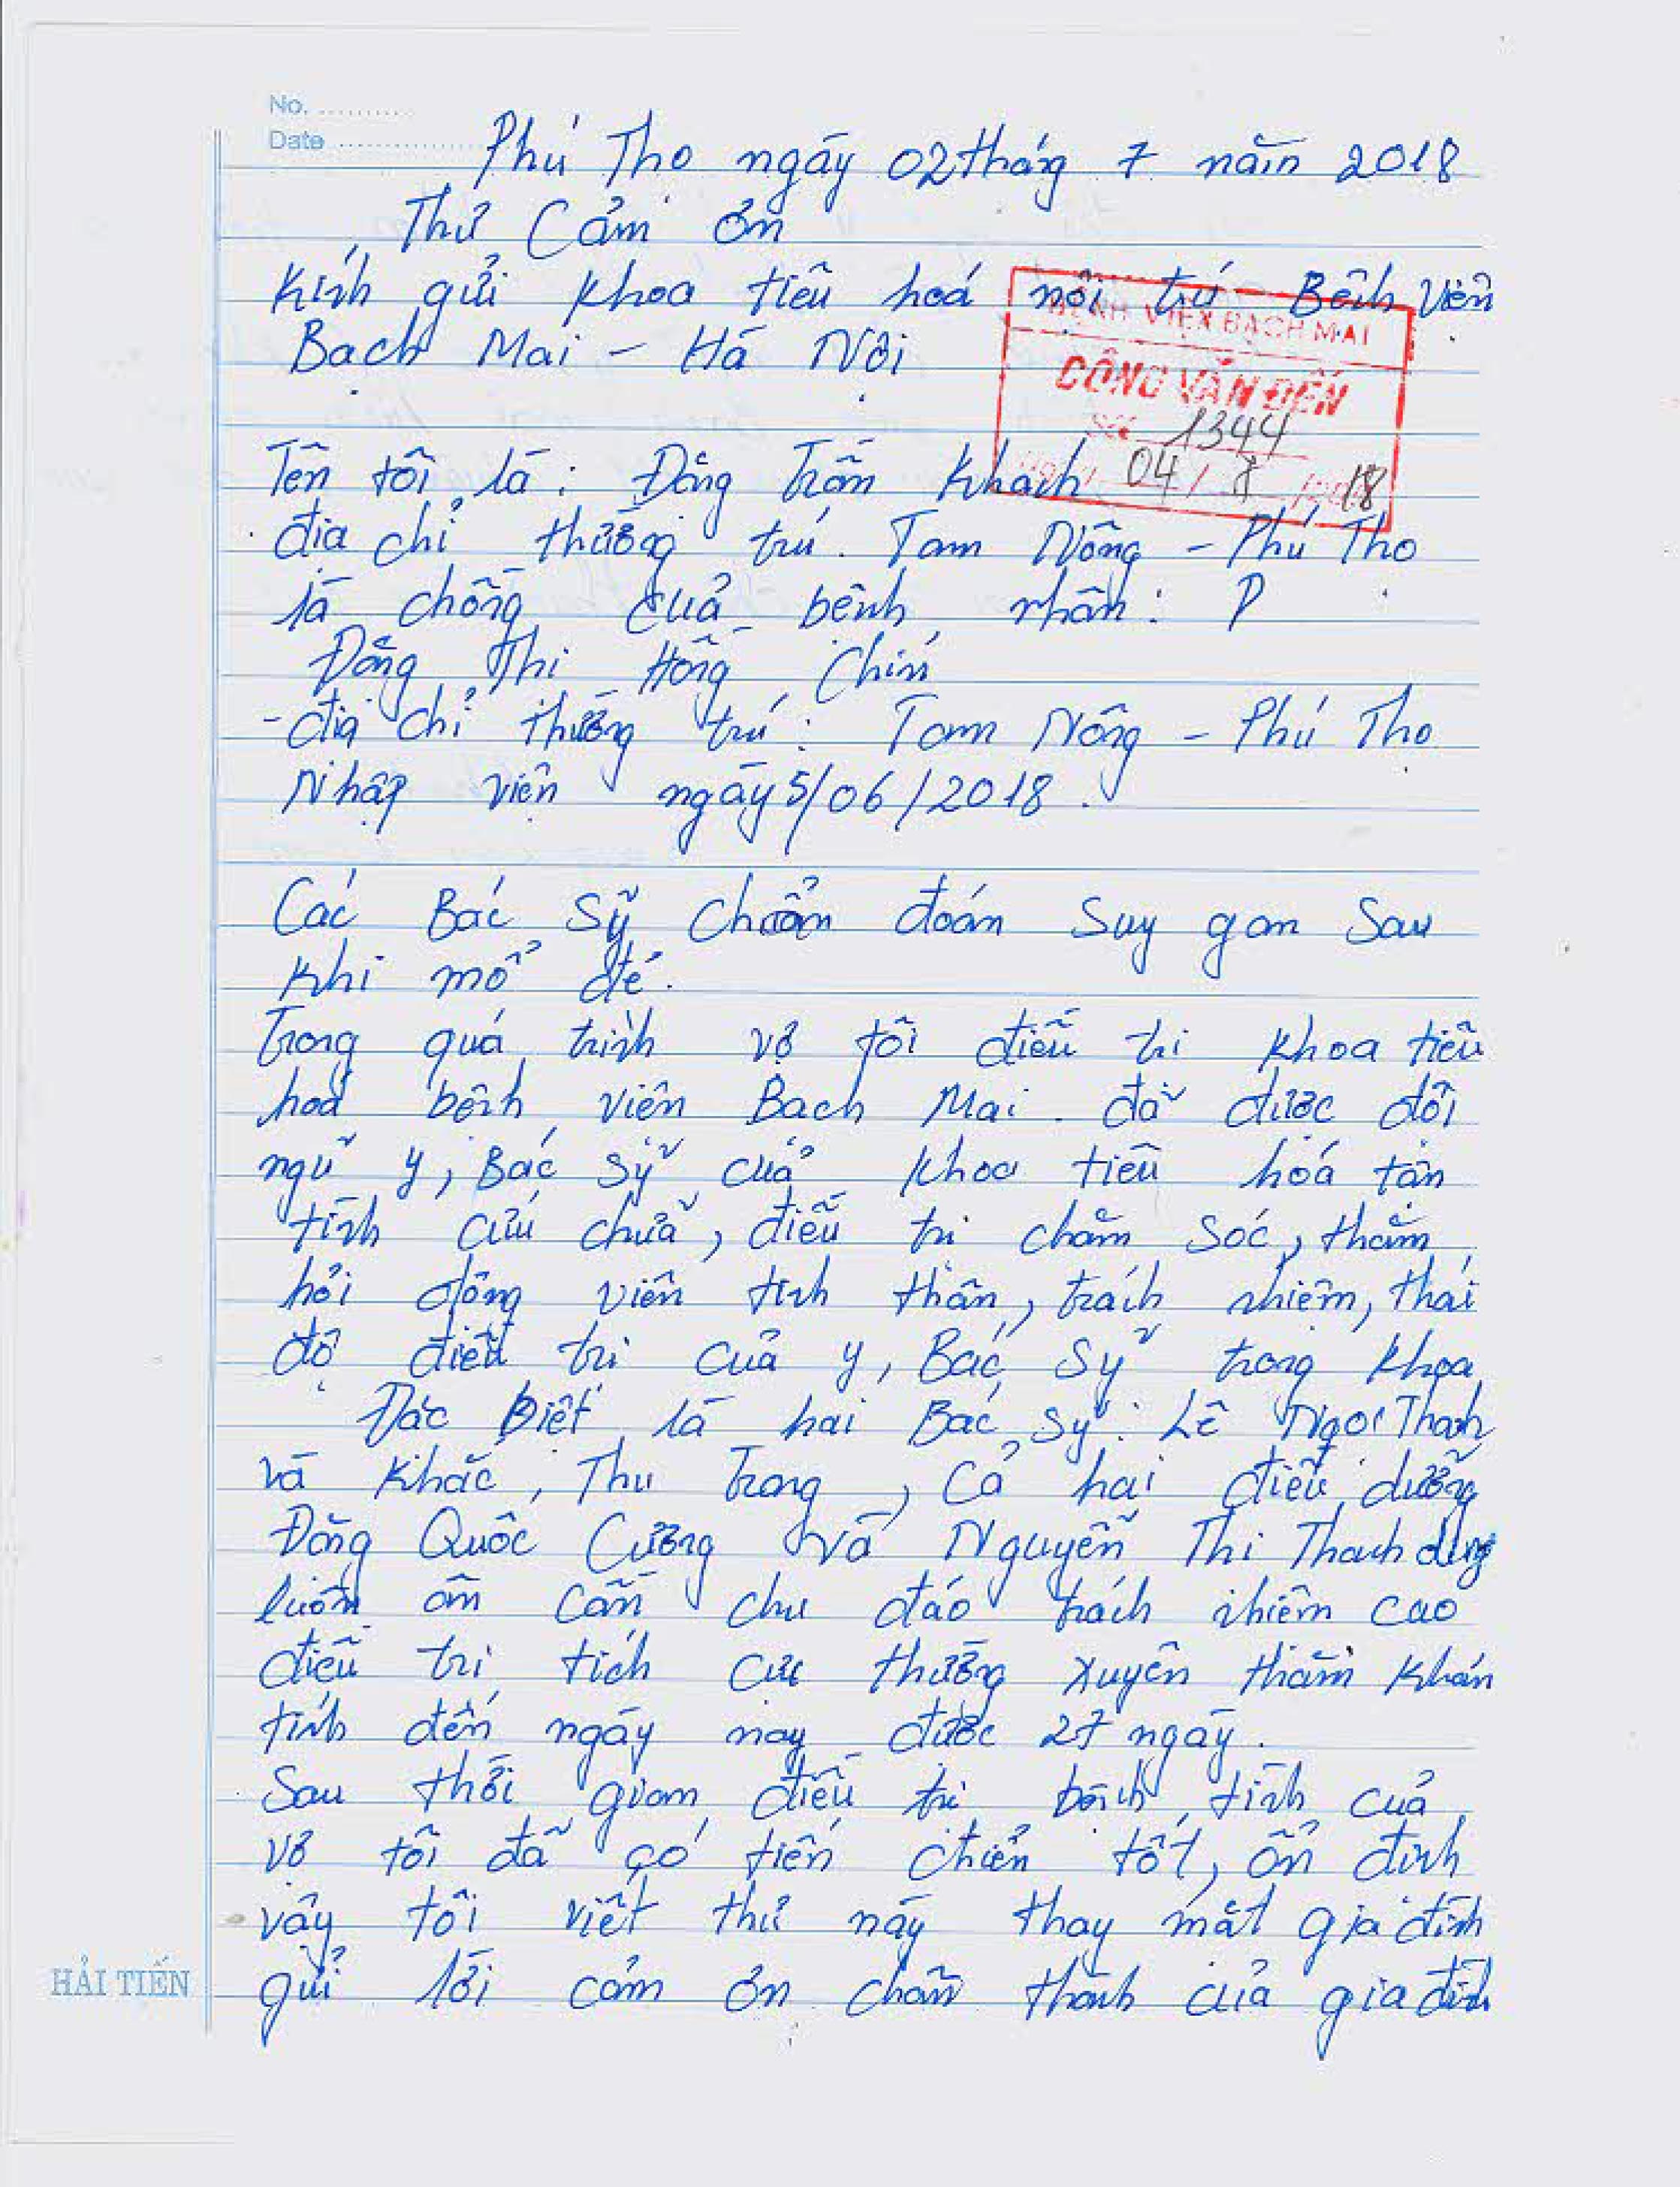 No. ..........
Date ................
Phú Thọ ngày 02 tháng 7 năm 2018
Thư Cảm ơn
Kính gửi khoa tiêu hoá nội trú Bệnh Viện
Bạch Mai - Hà Nội
BỆNH VIỆN BẠCH MAI
CÔNG VĂN ĐẾN
1344
04/8 18
Tên tôi là: Đặng Trần Khách
địa chỉ thường trú. Tam Nông - Phú Thọ
là chồng của bệnh nhân:
Đặng Thị Hồng Chín
- địa chỉ thường trú: Tam Nông - Phú Thọ
Nhập viện ngày 5/06/2018.
Các Bác Sỹ Chuẩn đoán Suy gan Sau
khi mổ đẻ.
Trong quá trình vợ tôi điều trị khoa tiêu
hoá bệnh viện Bạch Mai. đã được đội
ngũ y, Bác Sỹ của khoa tiêu hóa tận
tình cứu chữa, điều trị chăm sóc, thăm
hỏi động viên tinh thần, trách nhiệm, thái
độ điều trị của y, Bác Sỹ trong khoa
Đặc Biệt là hai Bác sỹ: Lê Ngọc Thanh
và Khắc Thu Trang, Cả hai điều dưỡng
Đặng Quốc Cường và Nguyễn Thị Thanh dung
luôn ân cần chu đáo trách nhiệm cao
điều trị tích cực thường xuyên thăm khán
tính đến ngày nay được 27 ngày.
Sau thời gian điều trị bệnh tình của
vợ tôi đã có tiến chiển tốt, ổn định
vậy tôi viết thư này thay mặt gia đình
gửi lời cảm ơn chân thành của gia đình
HẢI TIẾN